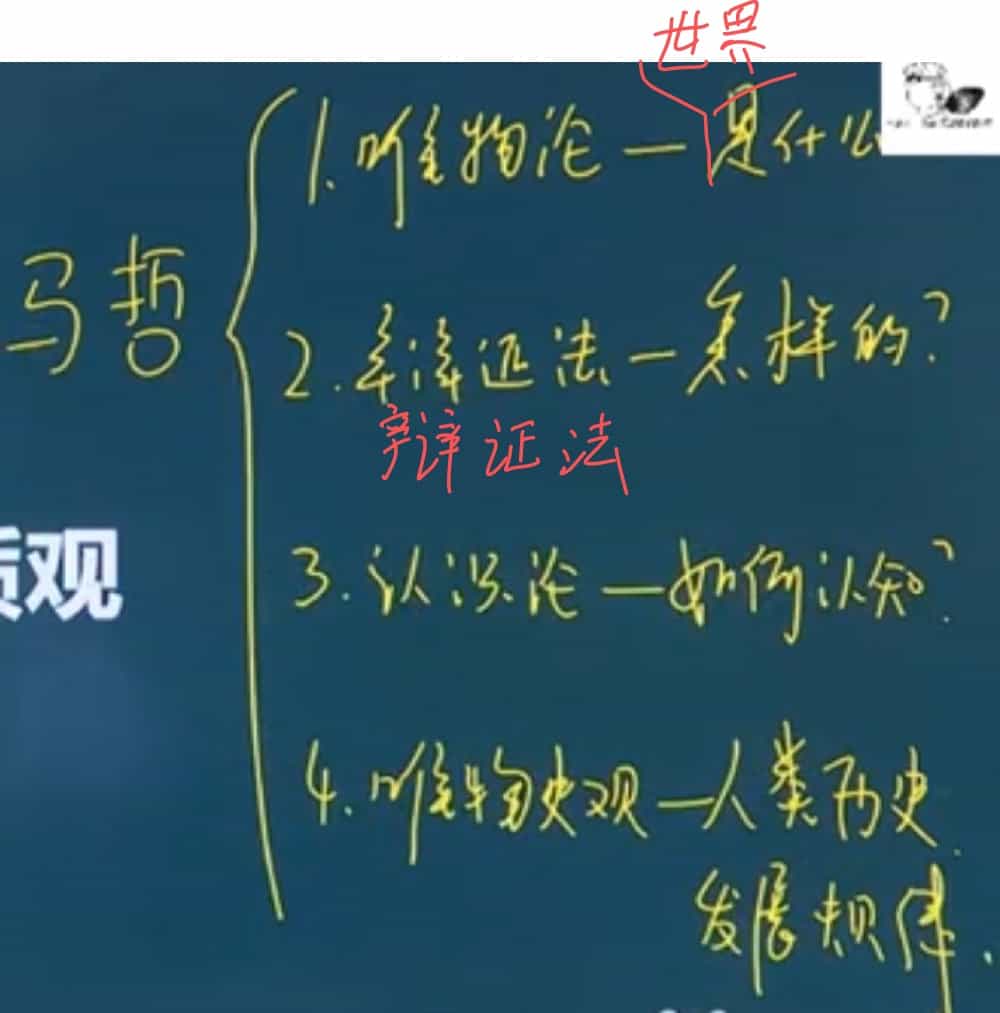 世界
1. 唯物论 — 是什么
马哲
2. 辩证法 — 怎样的?
辩证法
质观
3. 认识论 — 如何认知?
4. 唯物史观 — 人类历史
发展规律.